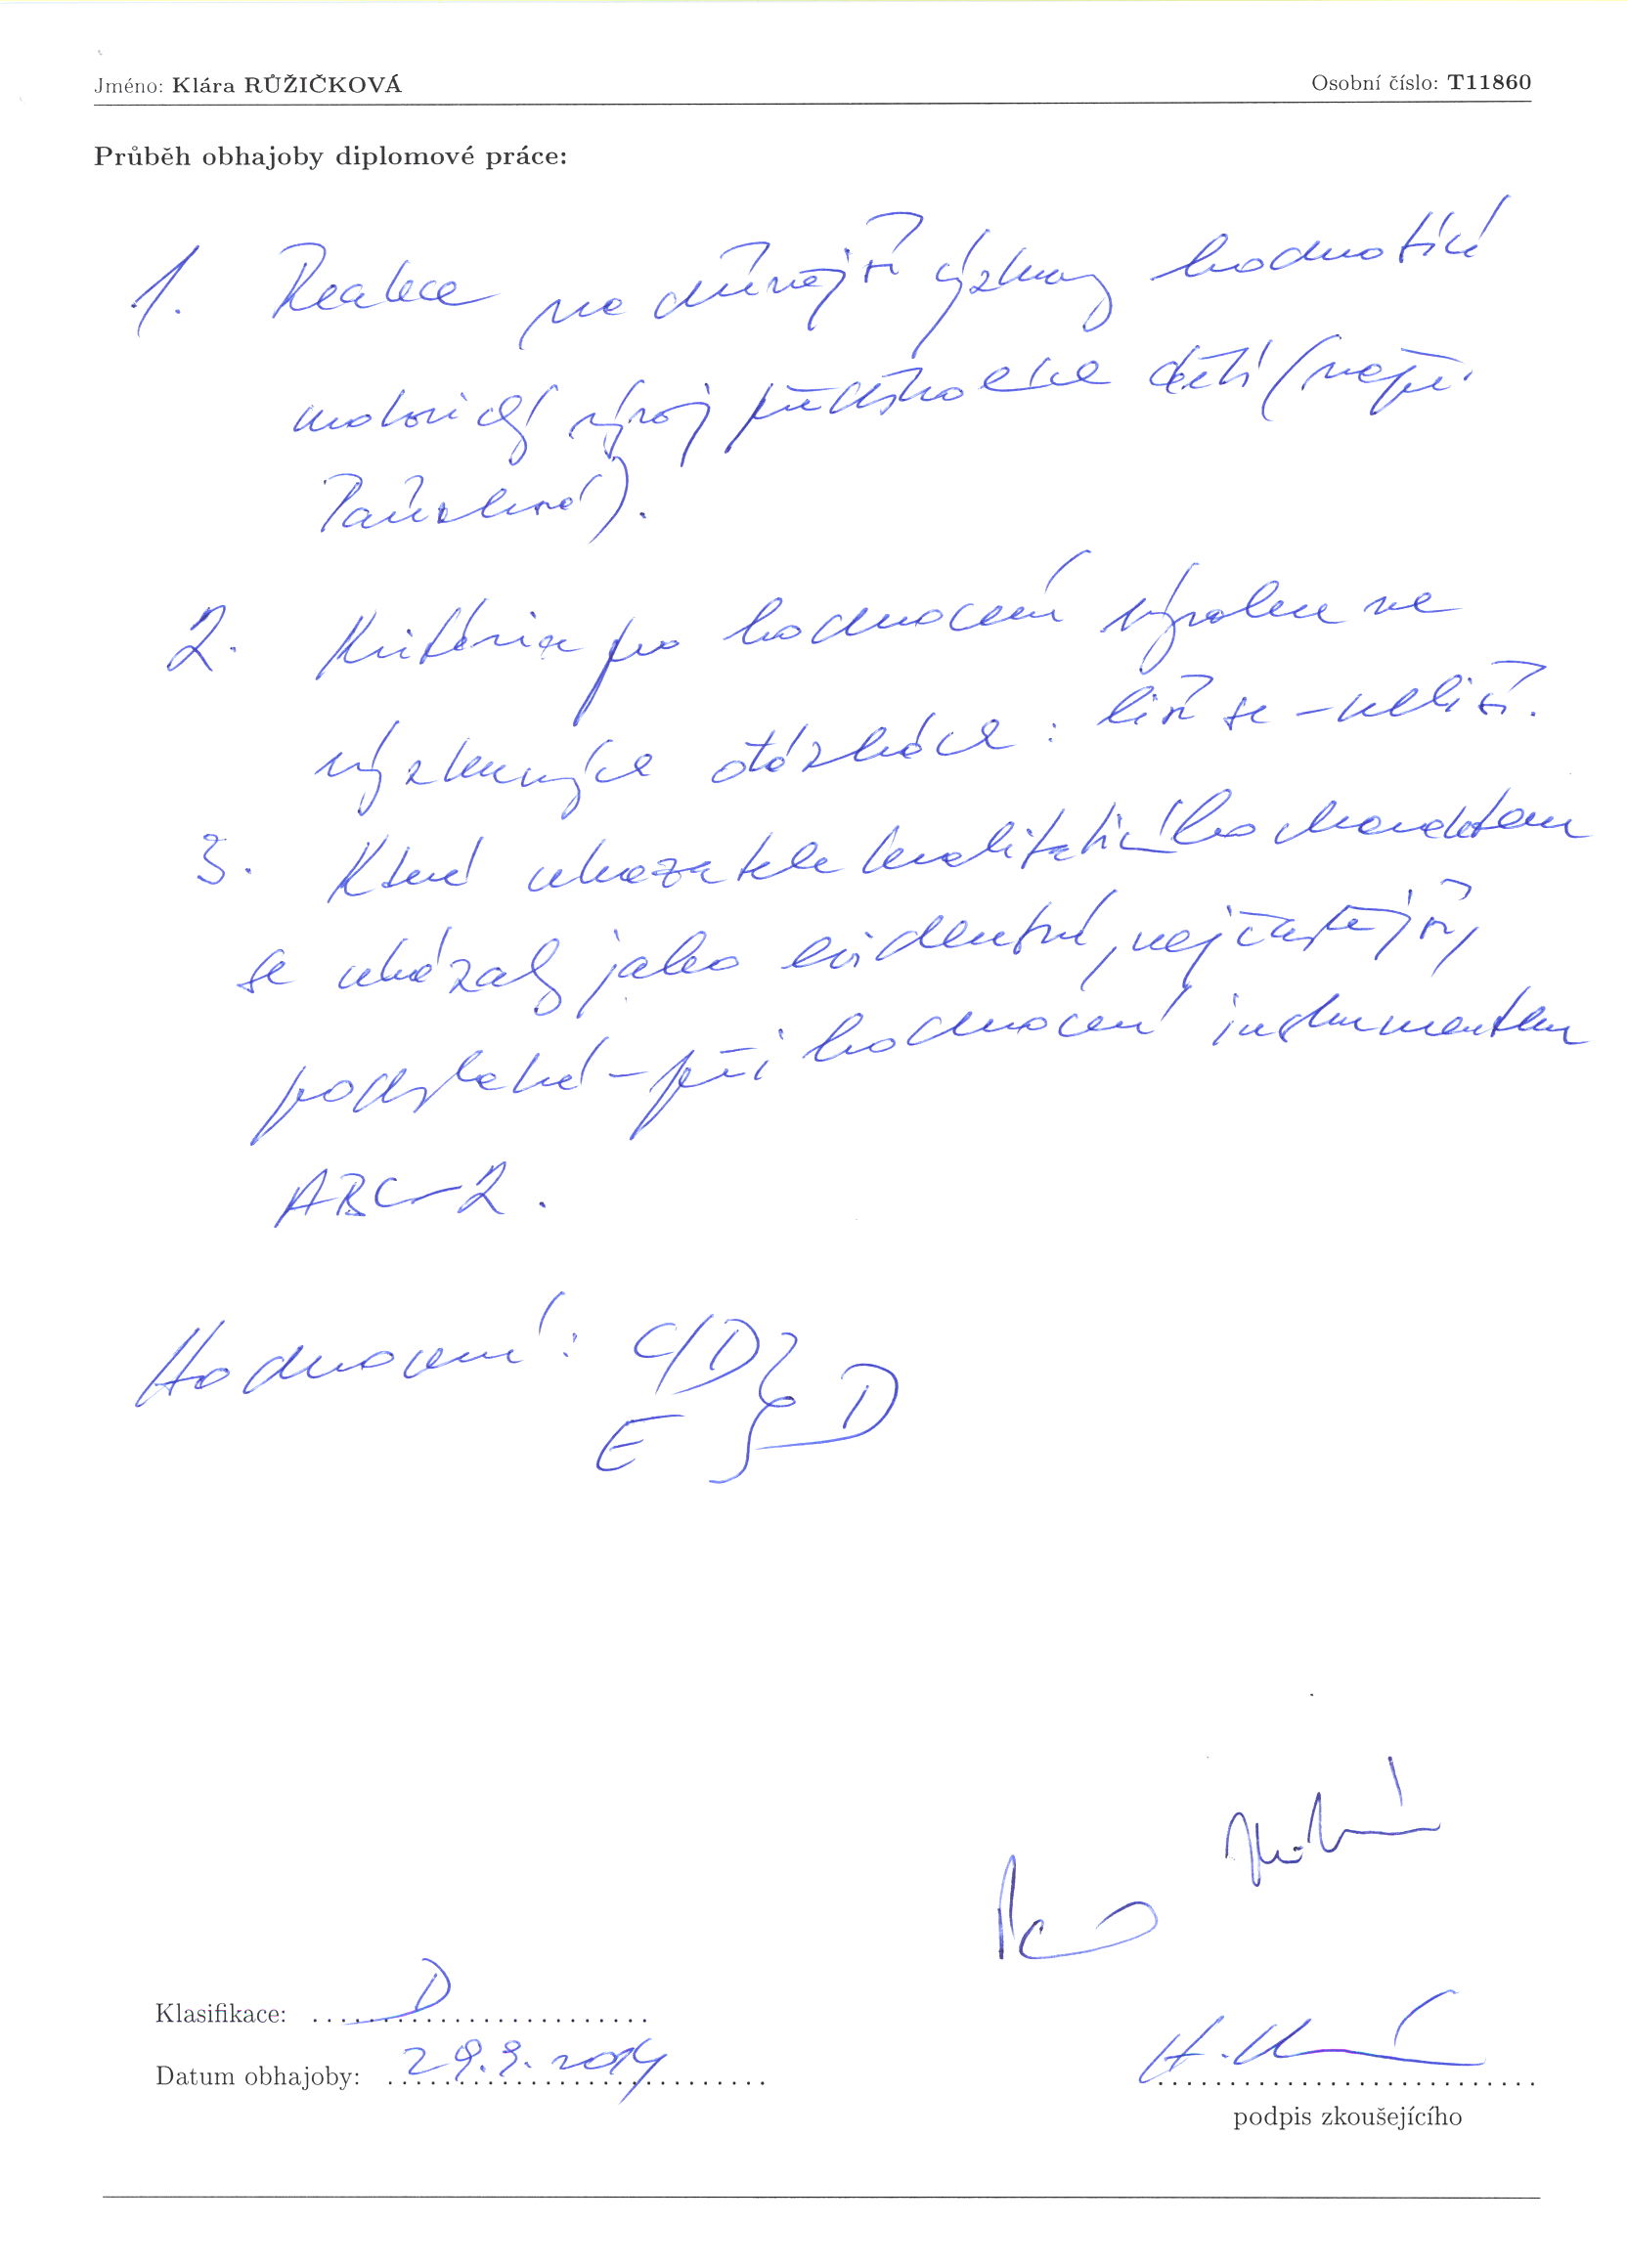 Jméno: Klára RŮŽIČKOVÁ
Osobní číslo: T11860
Průběh obhajoby diplomové práce:
1. Reakce na dřívější výzkumy hodnotící
motorický vývoj předškolních dětí (např.
2. Kritéria pro hodnocení výroku ve
výzkumných otázkách: liší se – neliší.
3. Které ukazatele kvalitativního charakteru
se ukázaly jako evidentní, nejčastější,
podstatné – při hodnocení instrumentem
ABC-2.
Hodnocení: C/D
E } D
Klasifikace: D
Datum obhajoby: 29.9.2014
podpis zkoušejícího